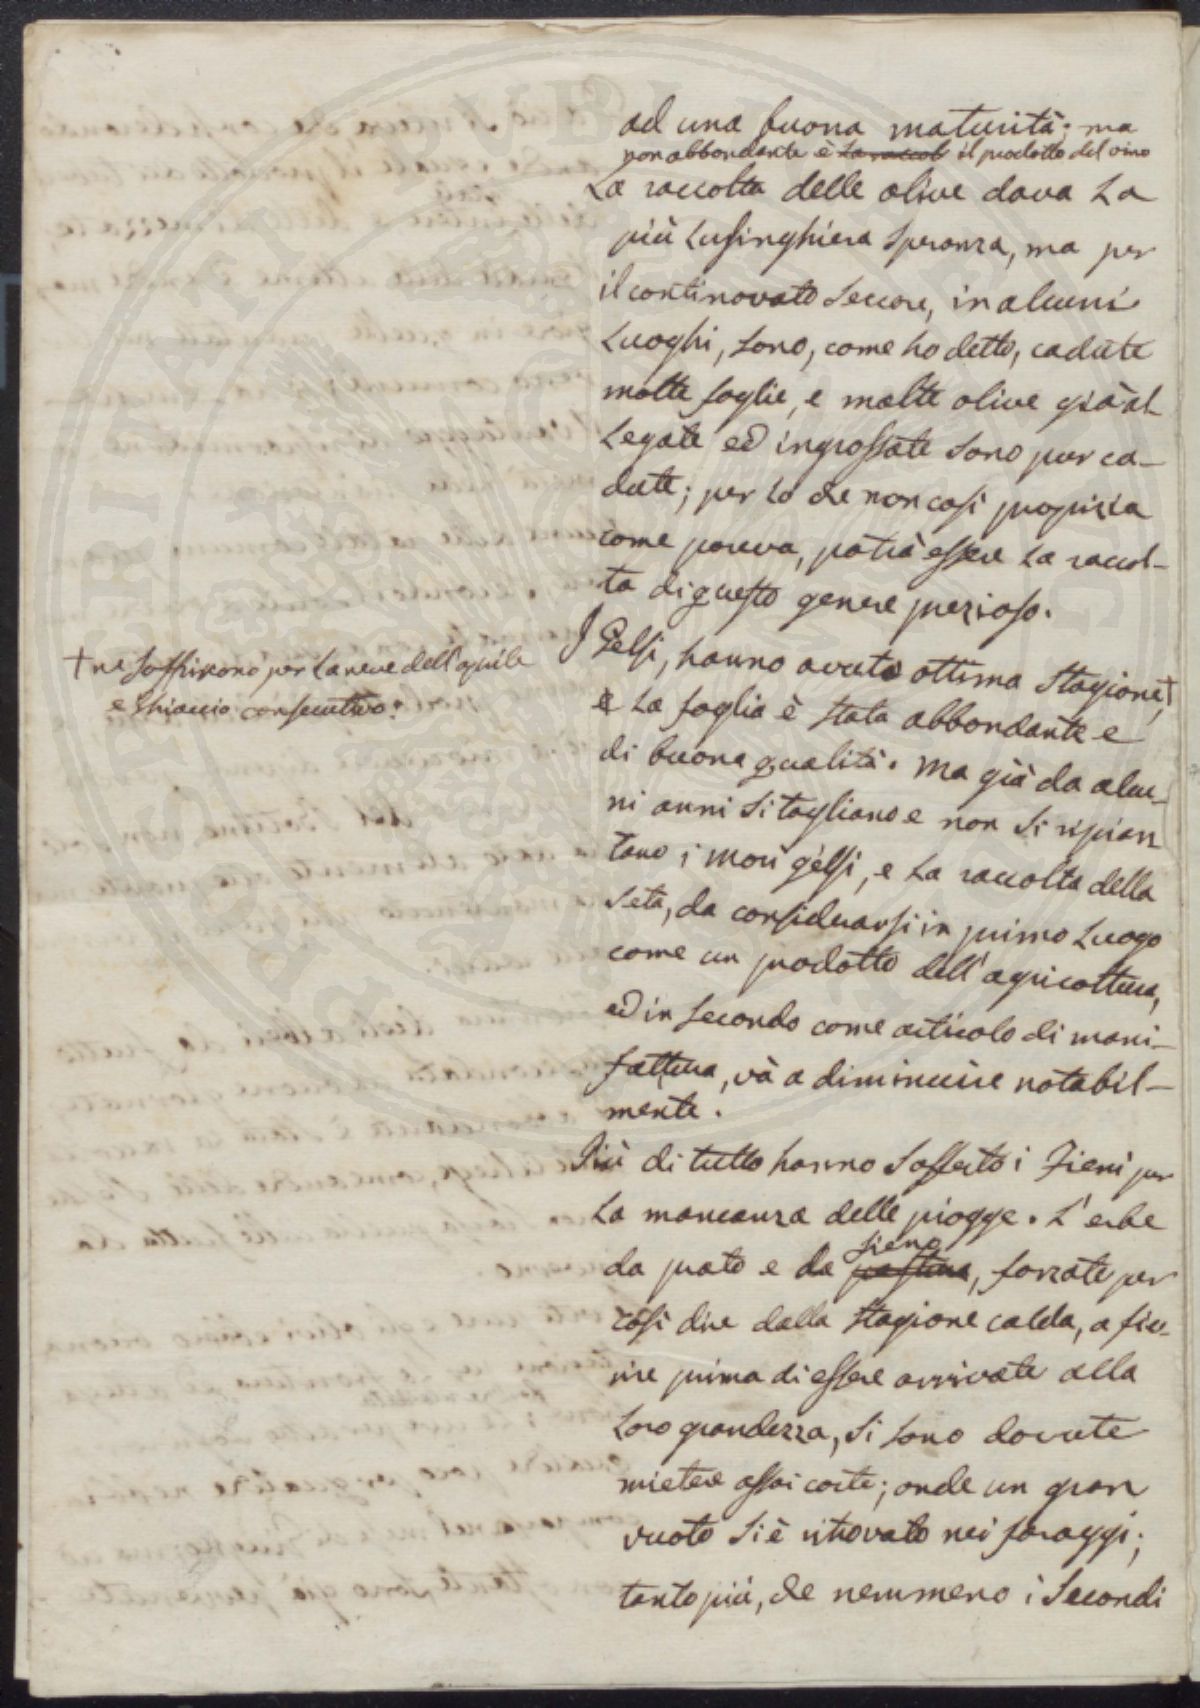 ad una buona maturità; ma
non abbondante è la raccol il prodotto del vino
La raccolta delle olive dava la
più lusinghiera speranza, ma per
il continovato seccore, in alcuni
luoghi, sono, come ho detto, cadute
molte foglie, e molte olive già al
legate ed ingrossate sono pur ca-
dute; per lo che non così propizia
come pareva, potrà essere la raccol-
ta di questo genere prezioso.
I Gelsi, hanno avuto ottima stagione, †
† ne soffrirono per la neve dell'aprile
e ghiaccio consecutivo:
e la foglia è stata abbondante e
di buona qualità. Ma già da alcu-
ni anni si tagliano e non si ripian
tano i mori gelsi, e la raccolta della
seta, da considerarsi in primo luogo
come un prodotto dell'agricoltura,
ed in secondo come articolo di mani-
fattura, và a diminuire notabil-
mente.
Più di tutto hanno sofferto i Fieni per
la mancanza delle piogge. L'erbe
fieno
da prato e da pastura, forzate per
così dire dalla stagione calda, a fio-
rire prima di essere arrivate alla
loro grandezza, si sono dovute
mietere assai corte; onde un gran
vuoto si è ritrovato nei foraggi;
tanto più, che nemmeno i secondi